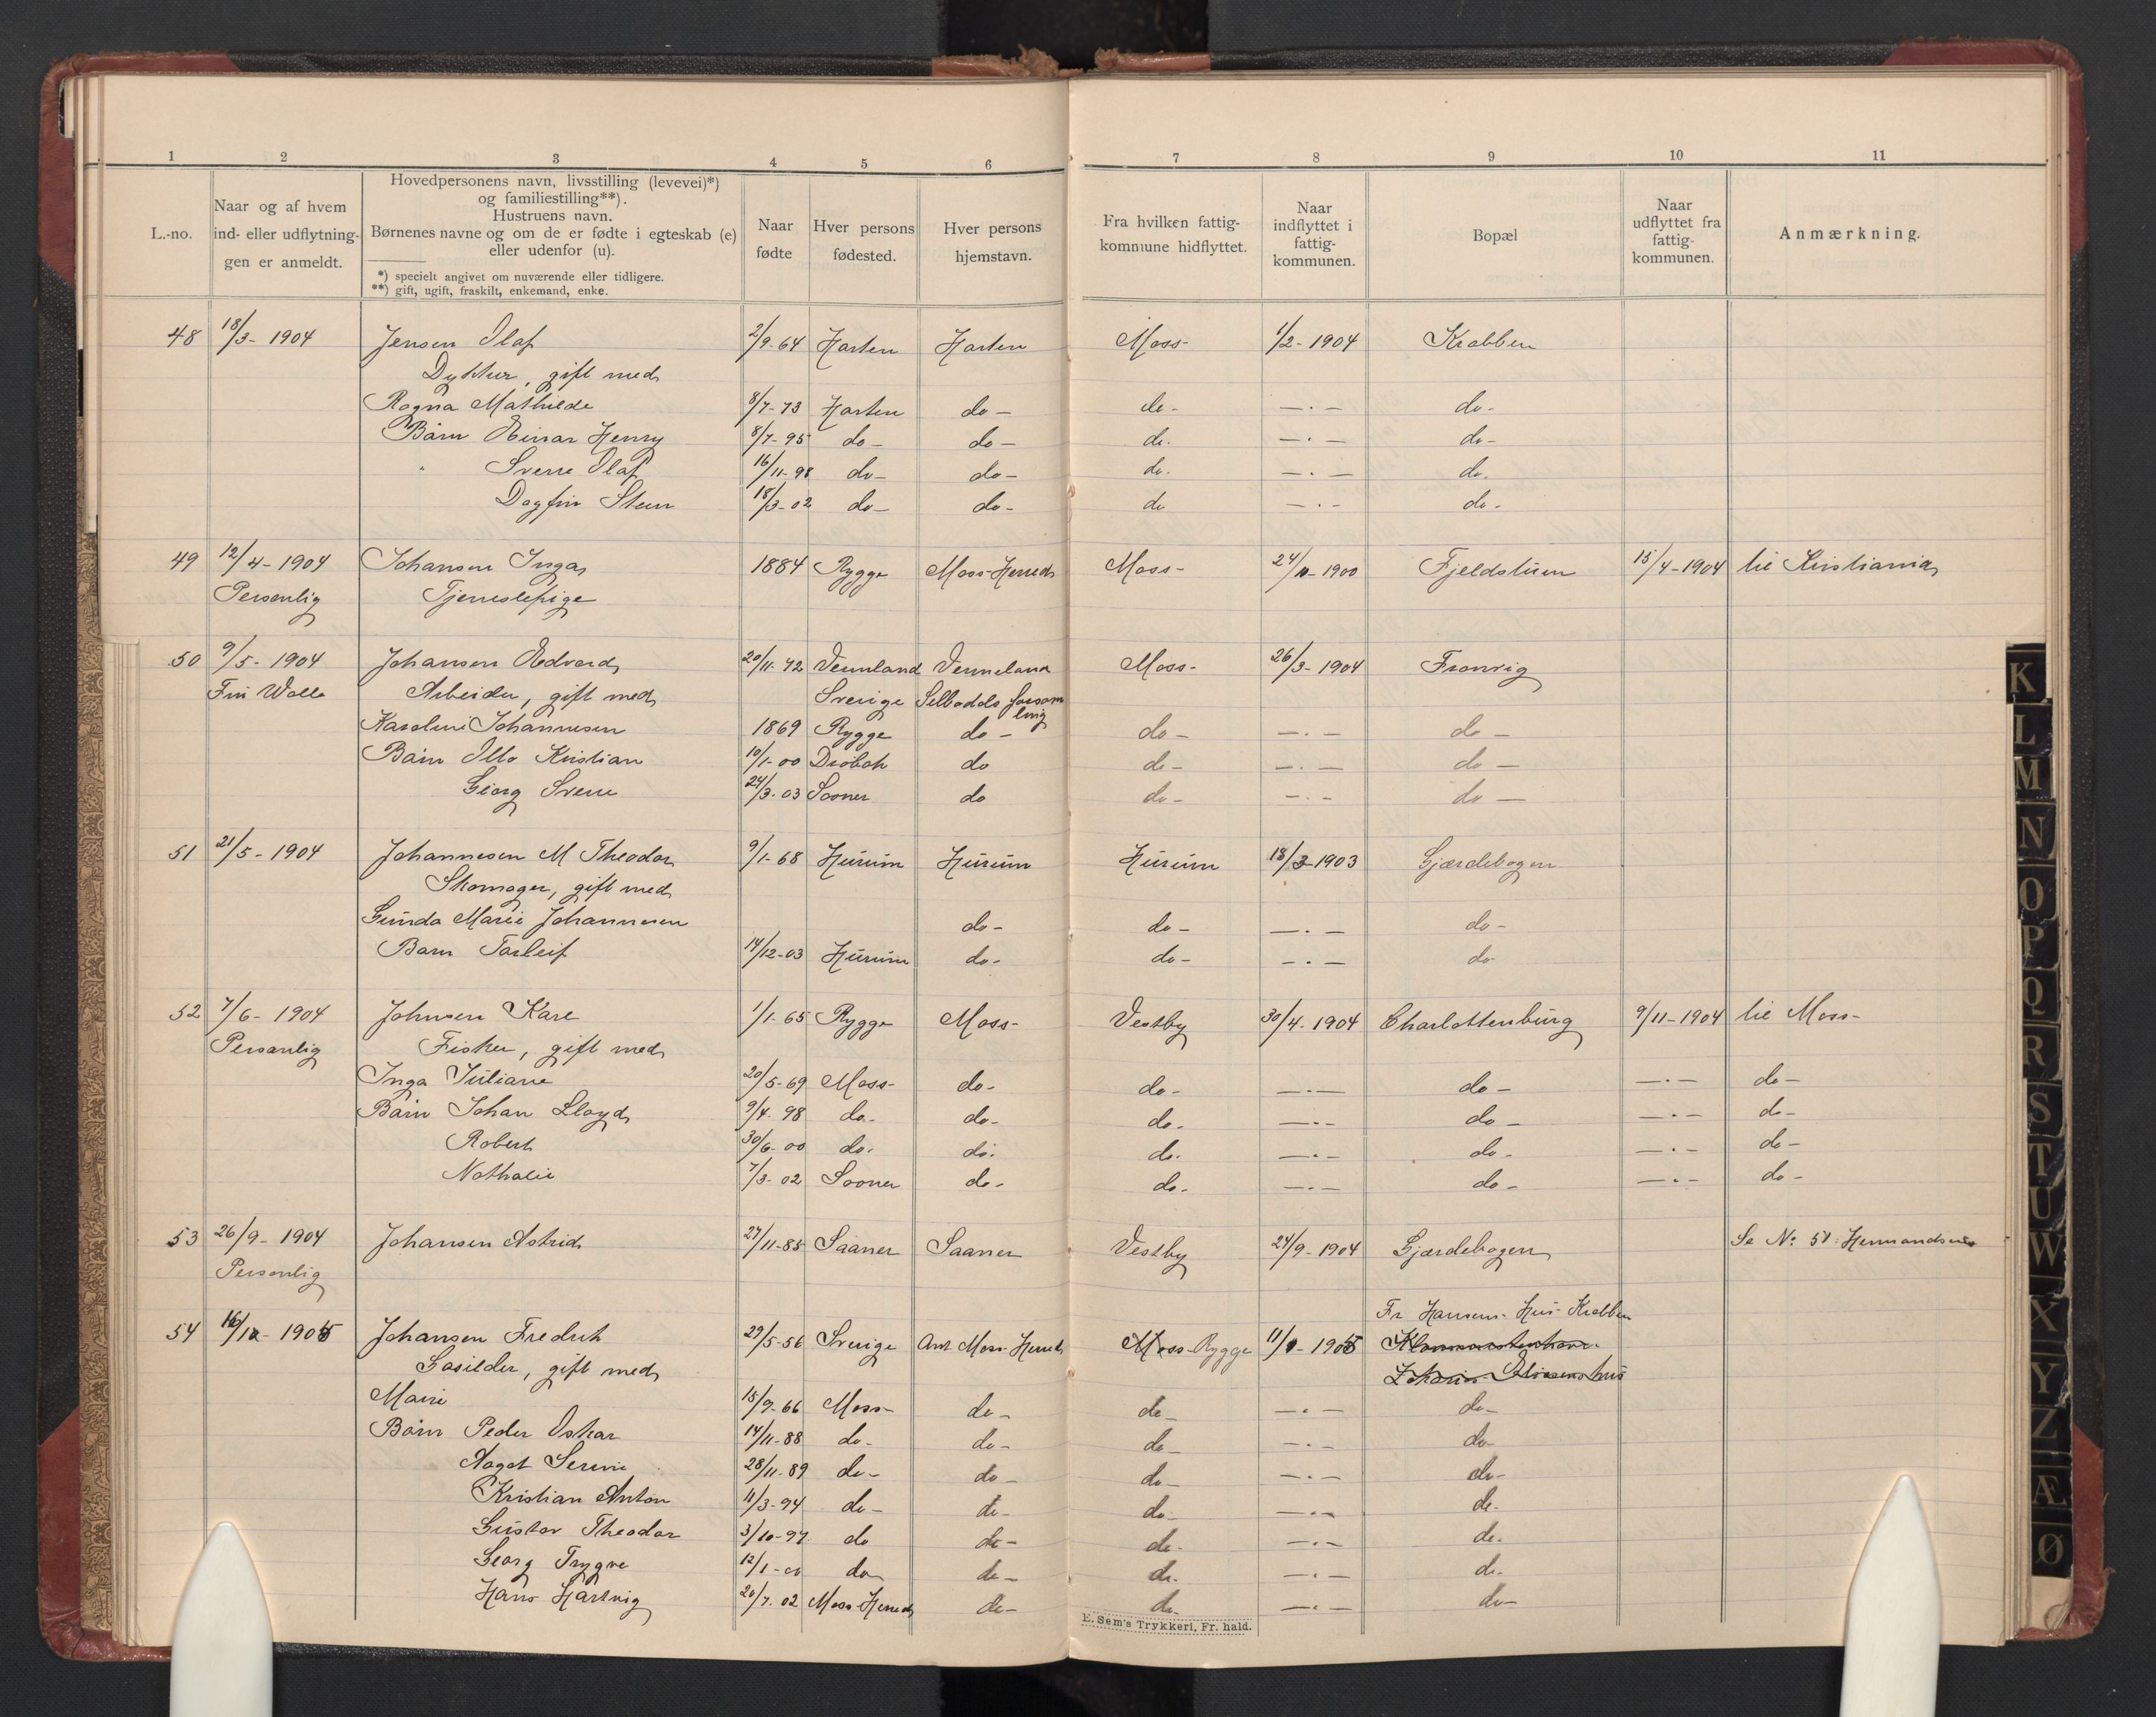 1 2 3 4 5 6 7 8 9 10 11
L.-no.
Naar og af hvem
ind- eller udflytnin-
gen er anmeldt.
Hovedpersonens navn, livsstilling (levevei)*)
og familiestilling**).
Hustruens navn.
Børnenes navne og om de er fødte i egteskab (e)
eller udenfor (u).
*) specielt angivet om nuværende eller tidligere.
**) gift, ugift, fraskilt, enkemand, enke.
Naar
fødte
Hver persons
fødested.
Hver persons
hjemstavn.
Fra hvilken fattig-
kommune hidflyttet.
Naar
indflyttet i
fattig-
kommunen.
Bopæl
Naar
udflyttet fra
fattig-
kommunen.
Anmærkning.
48 18/3- 1904 Jensen Olaf 2/9-64 Horten Horten Moss- 1/2-1904 Krabben
Dykker, gift med
Ragna Mathilde 8/7-73 Horten do - do- -.- do-
Børn Einar Henry 8/7-95 do- do- do. -.- do-
" Sverre Olaf 16/11-98 do- do- do. -.- do.
Dagfin Steen 18/3-02 do- do- do -.- do-
49 12/4-1904 Johansen Inga 1884 Rygge Moss-Herred Moss- 24/10-1900 Fjeldstuen 15/4-1904 til Kristiania
Personlig Tjenestepige
50 9/5-1904 Johansen Edvard 20/11-72 Vermland Vermeland Moss- 26/3-1904 Framvig
Arbeider, gift med Sverige
Karoline Johannesen 1869 Rygge do- do- -.- do-
Børn Otto Kristian 10/1-00 Drøbak do do- -.- do-
Georg Sverre 24/3-03 Sooner do do- -.- do-
51 21/5-1904 Johannesen M Theodor 9/1-68 Hurum Hurum Hurum 18/3-1903 Gjærdebogen
Skomager, gift med
Gunda Marie Johannesen do- do- -.- do-
Barn Torleif 14/12-03 Hurum do- do- -.- do-
52 7/6-1904 Johnsen Kare 1/1-65 Rygge Moss- Vestby 30/4-1904 Charlottenburg 9/11-1904 til Moss-
Personlig Fisker, gift med
Inga Juliane 20/5-69 Moss- do- do- -.- do- -.- do-
Børn Johan Lloyd 9/4-98 do- do- do- -.- do- -.- do-
Robert 30/6-00 do. do. do. -.- do- -.- do-
Nathalie 7/3-02 Sooner do- do- -.- do- -.- do-
53 26/9-1904 Johansen Astrid 27/11-85 Saaner Saaner Vestby 24/9-1904 Gjærdebogen Se No 51 Hermandsen
Personlig
Fr Hansens Hus Krabben
54 1905 Johansen Fredrik 29/5-56 Sverige Ant Moss-Herred Moss-Rygge 1905
gift med hus
Marie 15/9-66 Moss- do- do- -.- do-
Børn Peder Oskar 14/11-88 do- do- do- -.- do-
Aagot Serine 28/11-89 do- do- do- -.- do-
Kristian Anton 11/3-94 do- do- do- -.- do-
Gustav Theodor 3/10-97 do do- do- -.- do-
Georg Trygve 12/1-00 do do- do- -.- do-
Hans Hartvig 20/7-02 Moss-Herred do- do- -.- do-
E. Sem's Trykkeri, Fr. hald.
K
L
M
N
O
P
Q
R
S
T
U
W
X
Y
Z
Æ
Ø